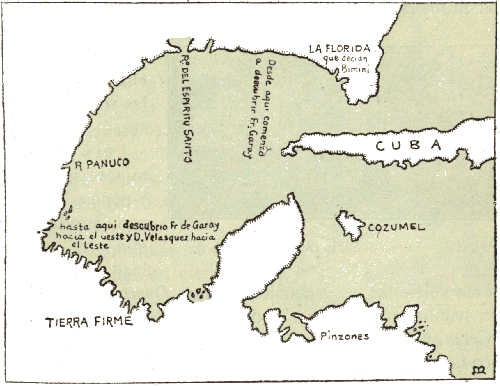 LA FLORIDA
que decian
Bimini
Ro. DEL ESPIRITU SANTO
Desde aqui comenzó
a descubrir Fr. Garay
CUBA
R PANUCO
hasta aqui descubrio Fr de Garay
hacia el ueste y D. Velasquez hacia
el Leste
COZUMEL
TIERRA FIRME
Pinzones